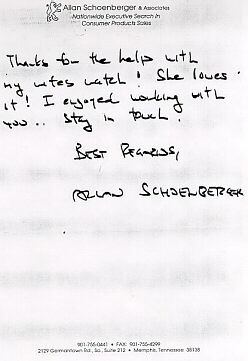 Allan Schoenberger & Associates
Nationwide Executive Search in
Consumer Products Sales
Thanks for the help with
my wifes watch! She loves
it! I enjoyed working with
you.. Stay in touch!
BEST REGARDS,
ALLAN SCHOENBERGER
901-755-0441 • FAX: 901-755-4299
2129 Germantown Rd., So., Suite 212 • Memphis, Tennessee 38138